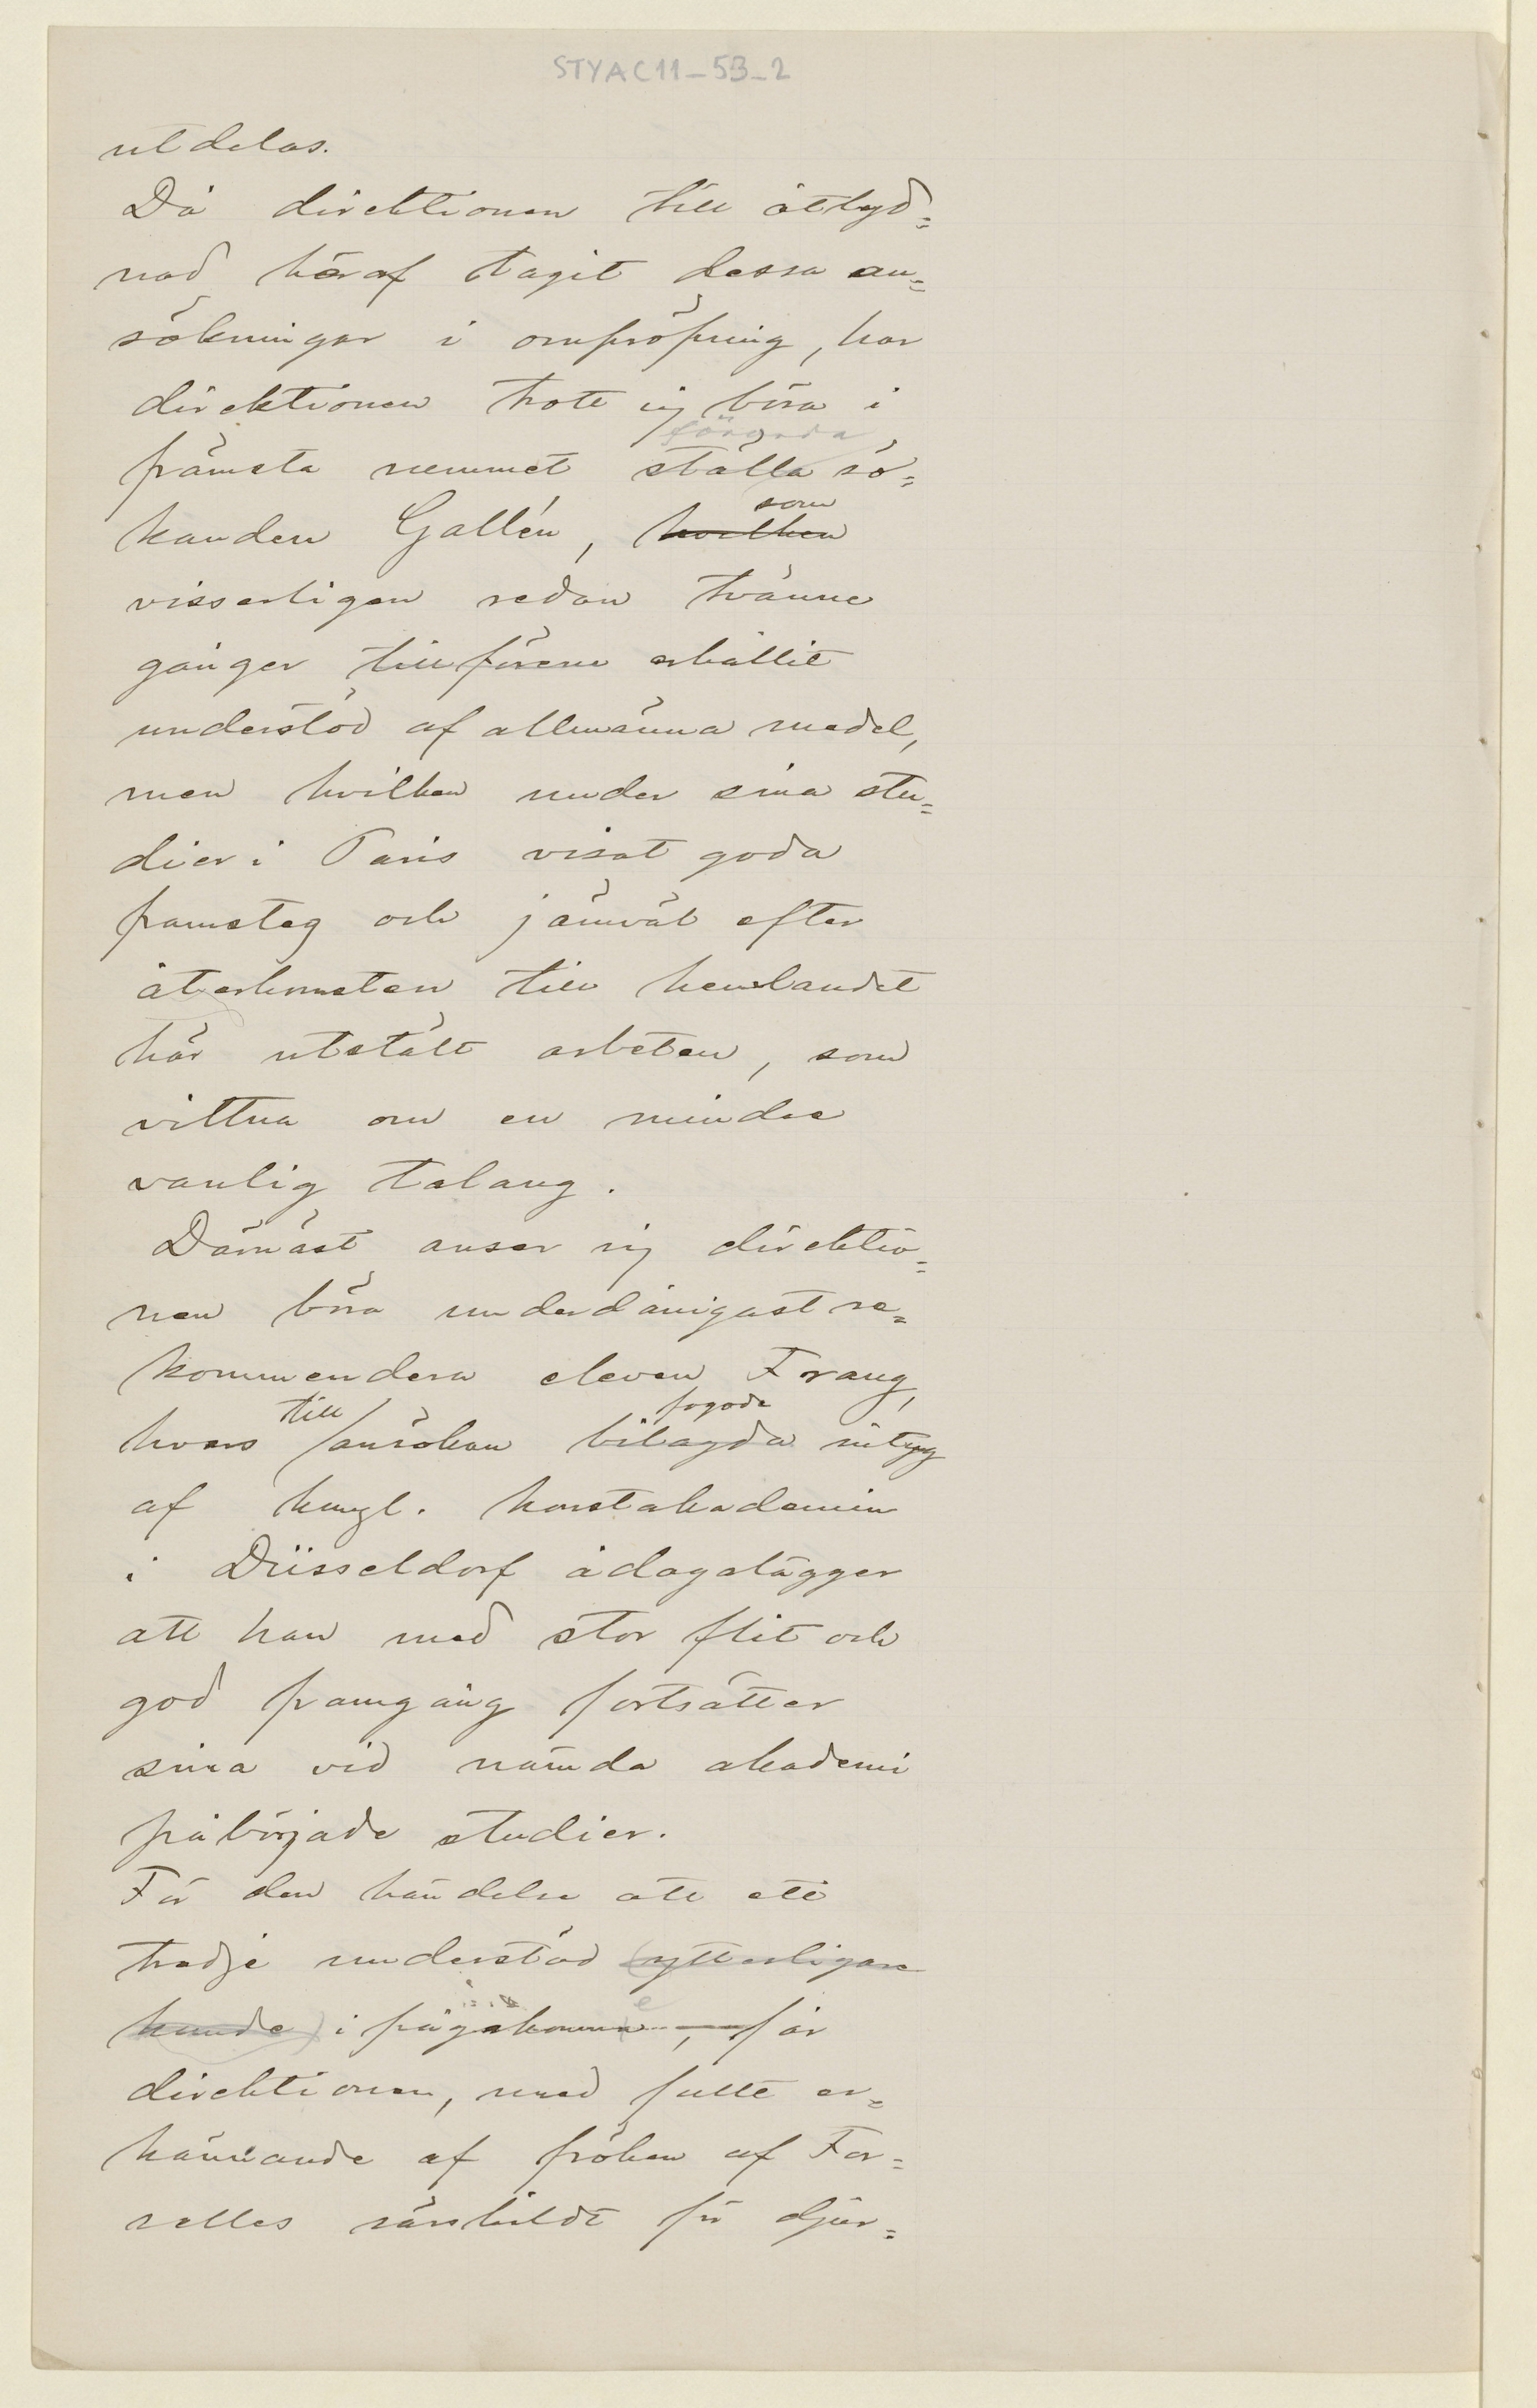 STYAC11_53_2
utdelas.
Då direktionen till åtlyd=
nad häraf tagit dessa an=
sökningar i ompröfning, har
direktionen trott sig böra i
förorda
främsta rummet ställa sö=
som
kanden Gallén, hvilken
visserligen redan tvänne
gånger tillförene erhållit
understöd af allmänna medel,
men hvilken under sina stu=
dier i Paris visat goda
framsteg och jämväl efter
återkomsten till hemlandet
här utstält arbeten, som
vittna om en mindre
vanlig talang.
Därnäst anser sig direktio=
nen böra underdånigast re=
kommendera eleven Frang,
till fogade
hvars ansökan bilagda intyg
af kungl. konstakademin
i Düsseldorf ådagalägger
att han med stor flit och
god framgång fortsätter
sina vid nämda akademi
påbörjade studier.
För den händelse att ett
tredje understöd (ytterligare
kunde) i frågakomme, får
direktionen, med fullt er=
kännande af fröken af For=
selles särskildt för djur=